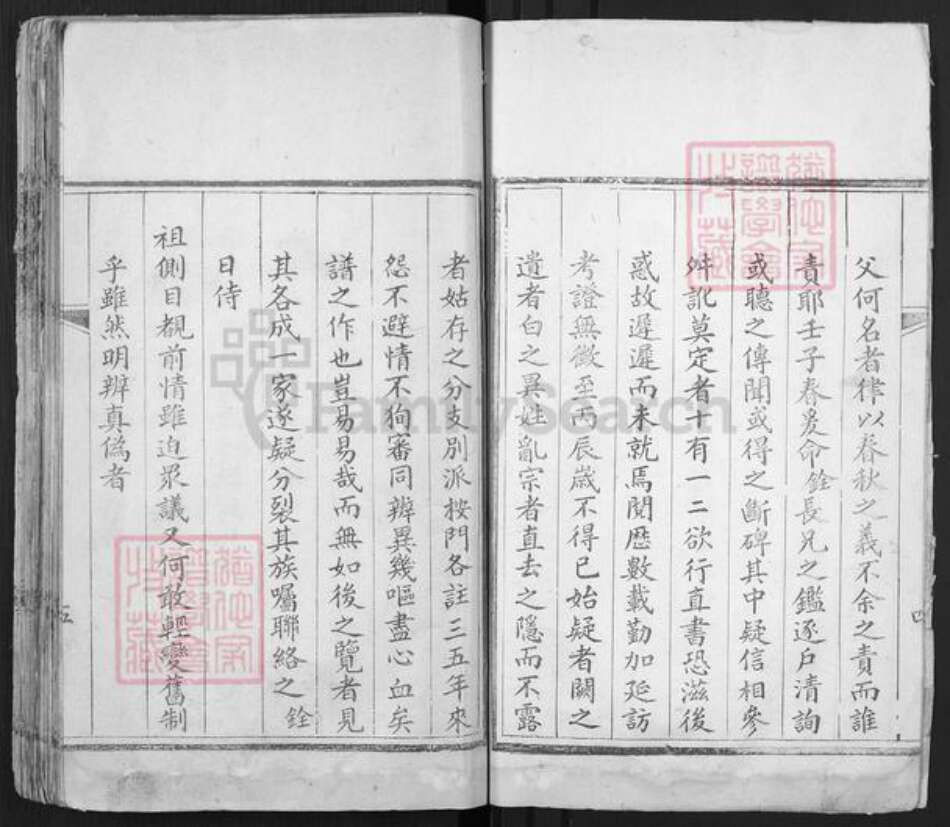 父何名者律以春秋之義不余之責而誰
責耶壬子春爰命銓長兄之鑑逐戶清詢
或聽之傳聞或得之斷碑其中疑信相參
舛訛莫定者十有一二欲行直書恐滋後
惑故遲遲而未就焉閱歷數載勤加延訪
考證無徵至丙辰嵗不得已始疑者闕之
遺者白之異姓亂宗者直去之隱而不露
四
者姑存之分支別派按門各註三五年來
怨不避情不狥審同辨異幾嘔盡心血矣
譜之作也豈易易哉而無如後之覽者見
其各成一家遂疑分裂其族囑聯絡之銓
日侍
祖側目覩前情雖迫眾議又何敢輕變舊制
乎雖然明辨真僞者
五
FamilySearch